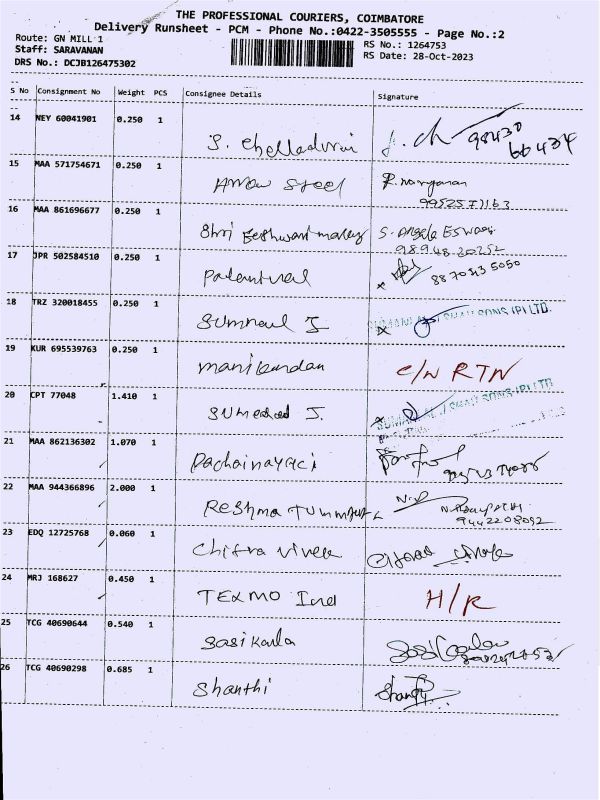 THE PROFESSIONAL COURIERS, COIMBATORE
Delivery Runsheet - PCM - Phone No.:0422-3505555 - Page No.:2
Route: GN MILL 1
Staff: SARAVANAN
DRS No.: DCJB126475302
RS No.: 1264753
RS Date: 28-Oct-2023
S No Consignment No Weight PCS Consignee Details Signature
14 NEY 60041901 0.250 1
S. Chelladurai J. Ch 98430
66434
15 MAA 571754671 0.250 1
Arrow Steel P. narayanan
9952571163
16 MAA 861696677 0.250 1
Shri Eeshwari S. Angala Eswari
98948 20252
17 JPR 502584510 0.250 1
8870 5050
18 TRZ 320018455 0.250 1
J SHAH SONS (P) LTD.
19 KUR 695539763 0.250 1
manikandan C/N RTN
20 CPT 77048 1.410 1
J. SHAH SONS (P) LTD
21 MAA 862136302 1.070 1
Pachainayaci
22 MAA 944366896 2.000 1
Reshma
9442208092
23 EDQ 12725768 0.060 1
Chitra Vivek
24 MRJ 168627 0.450 1
TEXMO Ind H/R
25 TCG 40690644 0.540 1
Sasikala
26 TCG 40690298 0.685 1
Shanthi